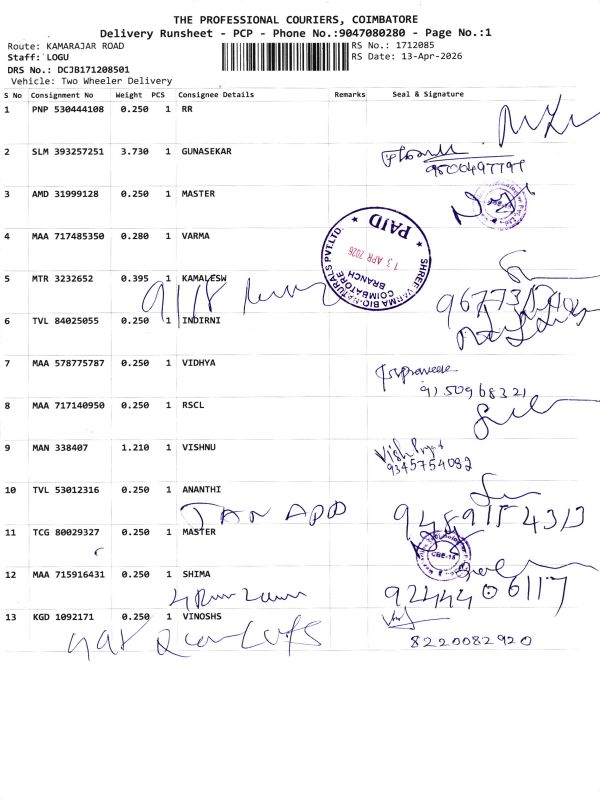 THE PROFESSIONAL COURIERS, COIMBATORE
Delivery Runsheet - PCP - Phone No.:9047080280 - Page No.:1
Route: KAMARAJAR ROAD
RS No.: 1712085
Staff: LOGU
RS Date: 13-Apr-2026
DRS No.: DCJB171208501
Vehicle: Two Wheeler Delivery
S No Consignment No Weight PCS Consignee Details Remarks Seal & Signature
1 PNP 530444108 0.250 1 RR
2 SLM 393257251 3.730 1 GUNASEKAR
9500497797
3 AMD 31999128 0.250 1 MASTER
4 MAA 717485350 0.280 1 VARMA
PAID
13 APR 2026
SHREE VARMA BIO NATURALS PVT LTD.
COIMBATORE
BRANCH
5 MTR 3232652 0.395 1 KAMALESW
6 TVL 84025055 0.250 1 INDIRNI
7 MAA 578775787 0.250 1 VIDHYA
9150968321
8 MAA 717140950 0.250 1 RSCL
9 MAN 338407 1.210 1 VISHNU
9345754082
10 TVL 53012316 0.250 1 ANANTHI
11 TCG 80029327 0.250 1 MASTER
CBE-15
12 MAA 715916431 0.250 1 SHIMA
9244406117
13 KGD 1092171 0.250 1 VINOSHS
8220082920